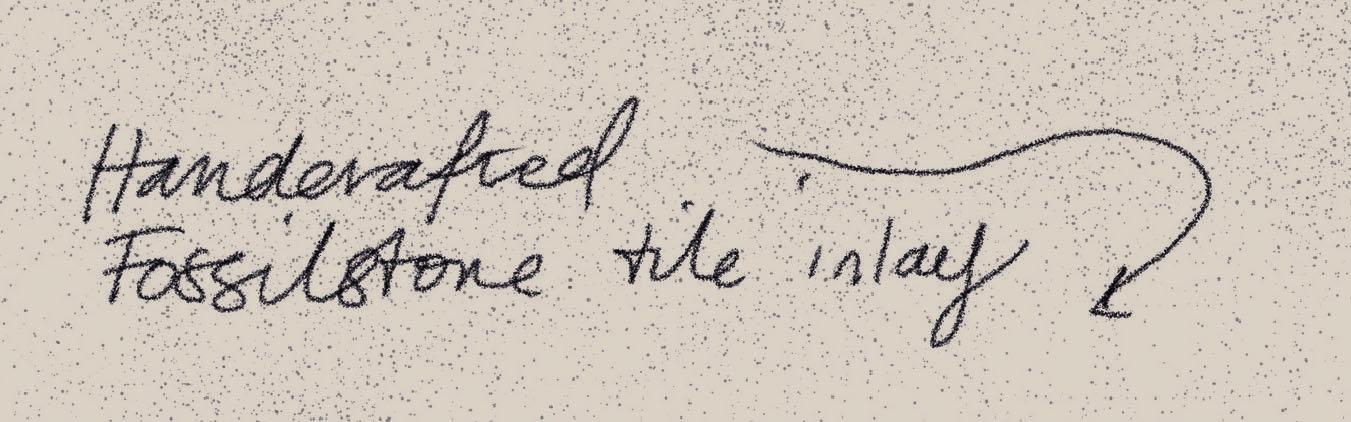 Handcrafted
Fossilstone tile inlay